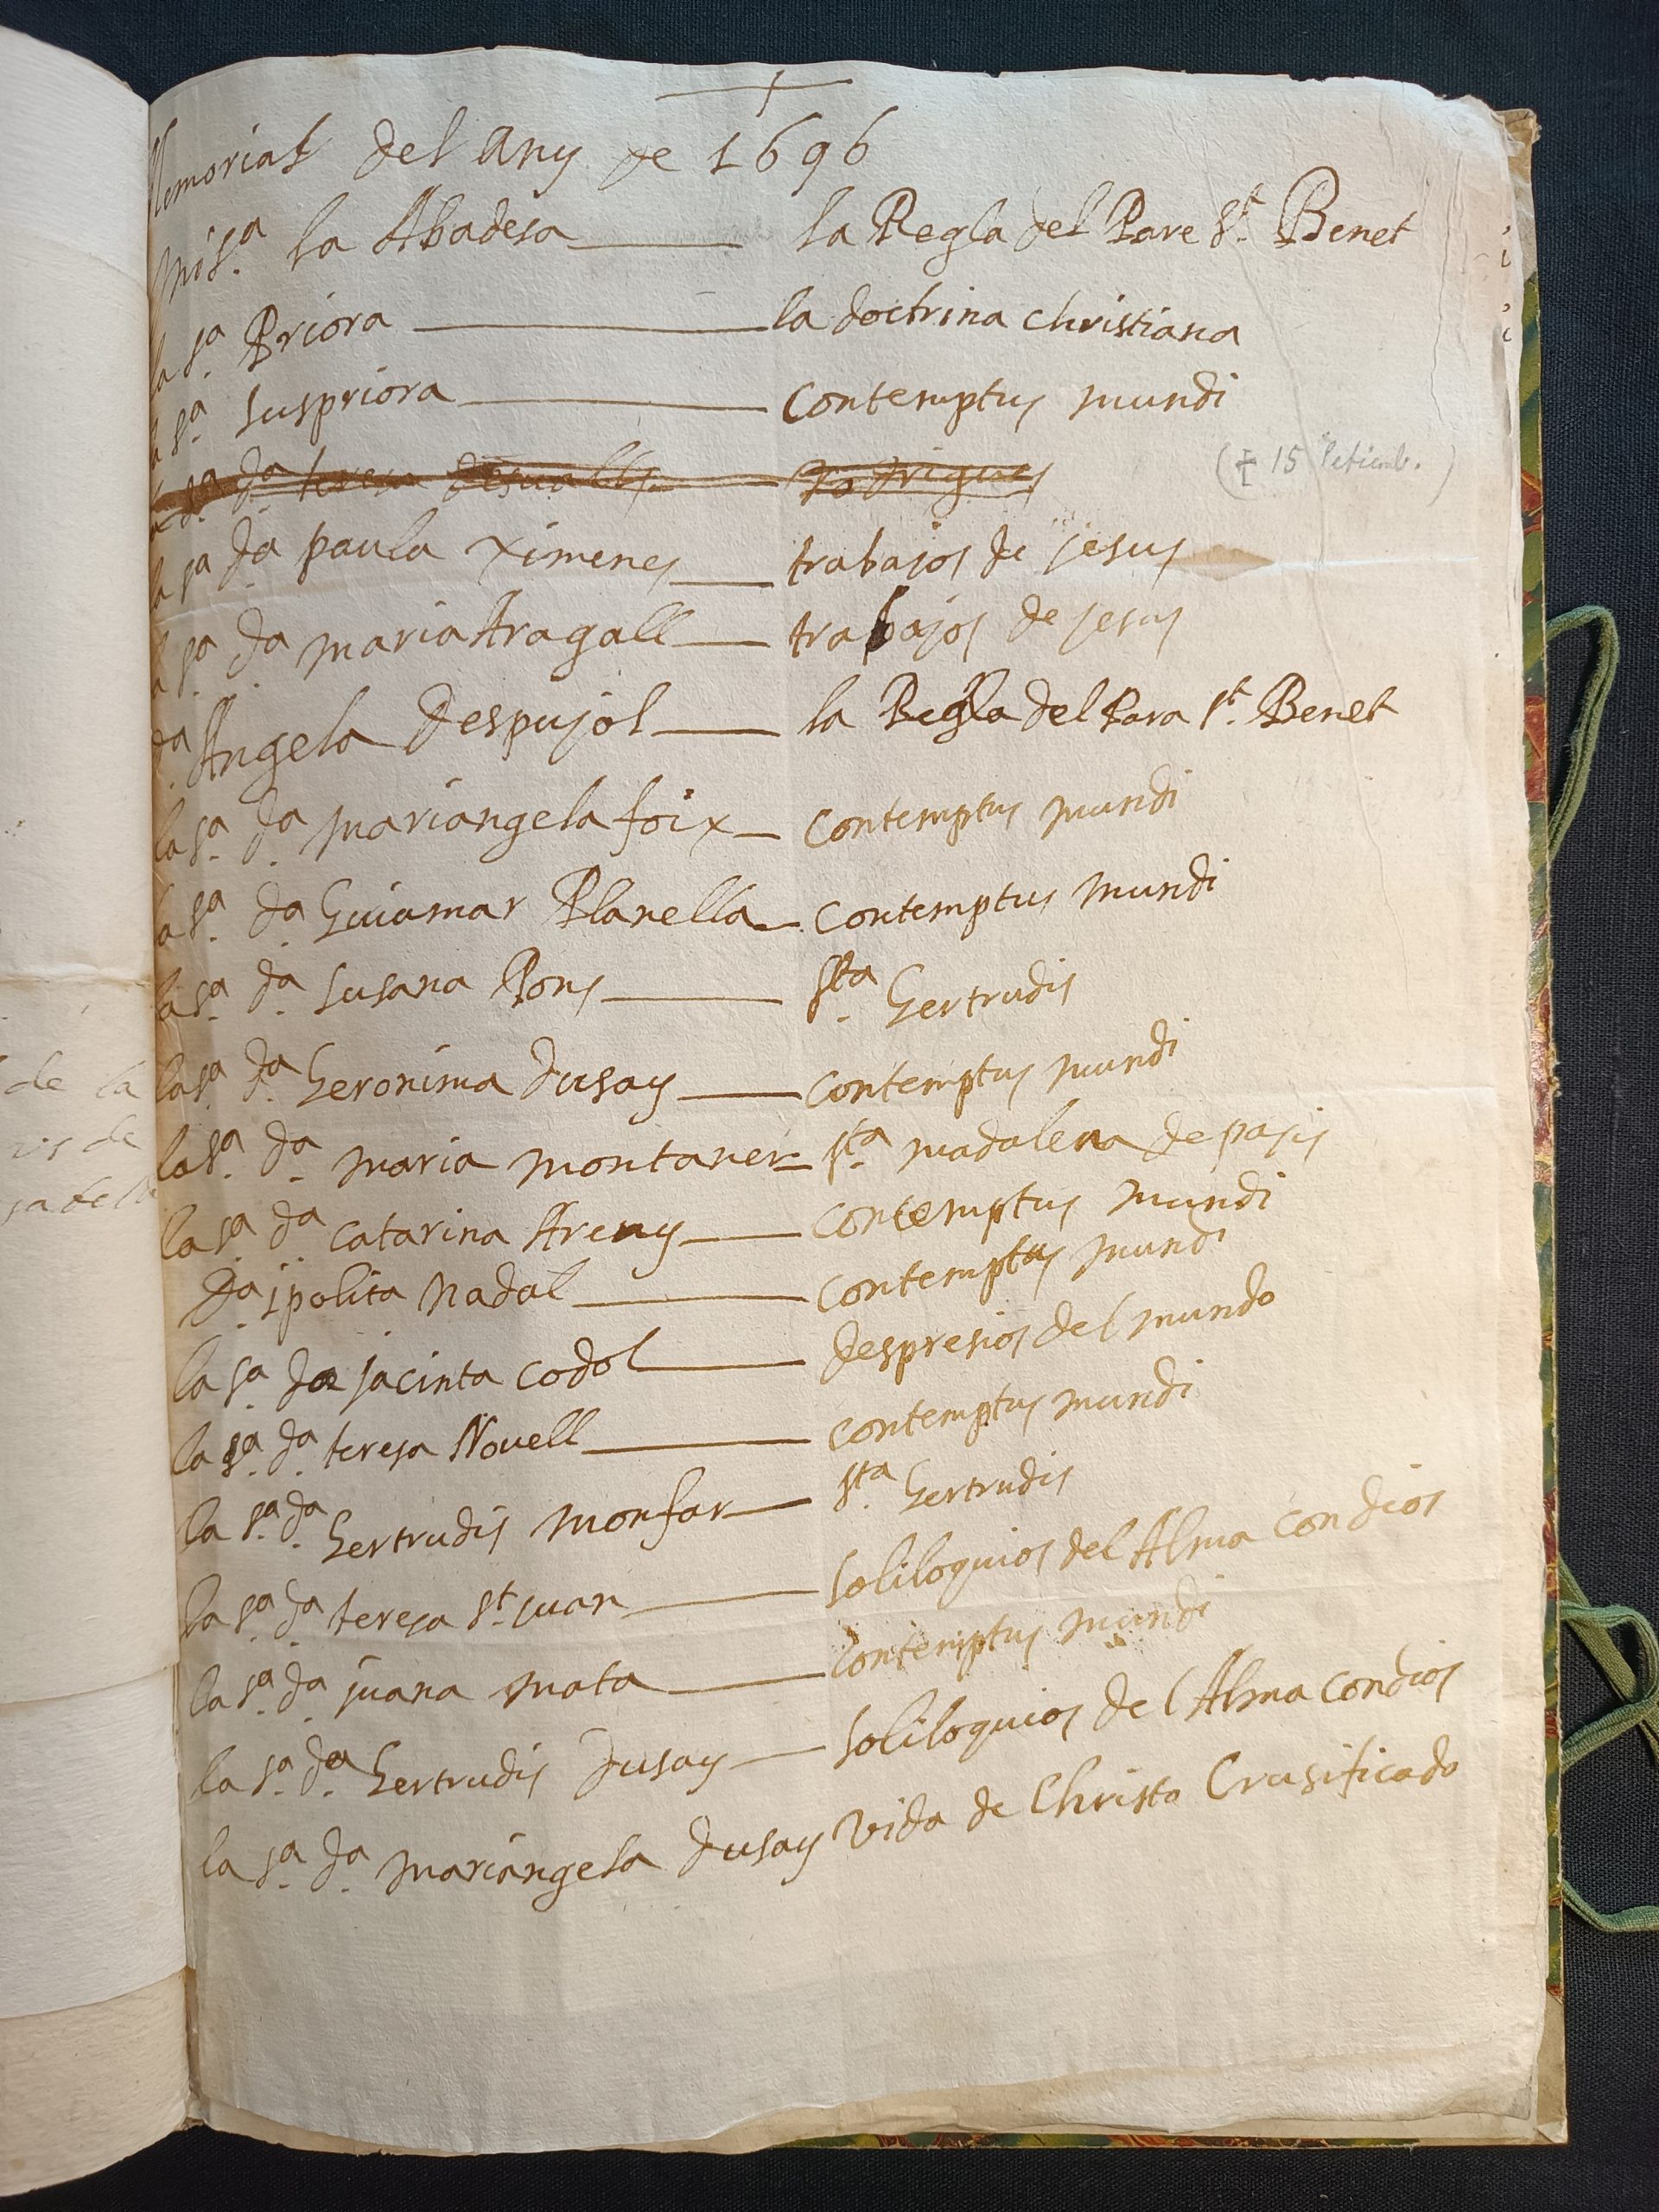 Memorial del any de 1696
mi sª la Abadesa la Regla del Pare St. Benet
la sª Priora la doctrina christiana
la sª suspriora contemptus mundi
la sª dª teresa desvalls rodrigues († 15 Setiemb.)
la sª dª paula ximenes trabajos de jesus
la sª dª maria Aragall trabajos de jesus
dª Angela despujol la Regla del Para St. Benet
la sª dª mariangela foix contemptus mundi
la sª dª Guiamar Planella contemptus mundi
la sª dª susana Pons Sta Gertrudis
la sª dª Geronima dusay contemptus mundi
la sª dª maria montaner sta madalena de pasis
la sª dª catarina Areny contemptus mundi
dª ipolita nadal contemptus mundi
la sª dª jacinta codol despresios del mundo
la sª dª teresa Novell contemptus mundi
la sª dª Gertrudis monfar sta Gertrudis
la sª dª teresa st juan soliloquios del Alma con dios
la sª dª juana mata contemptus mundi
la sª dª Gertrudis dusay soliloquios del Alma con dios
la sª dª mariangela dusay vida de Christo Crusificado
de la